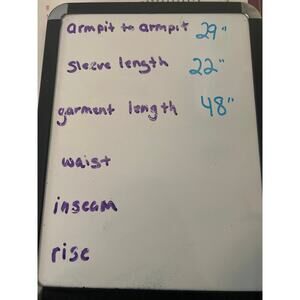 armpit to armpit 29"
sleeve length 22"
garment length 48"
waist
inseam
rise